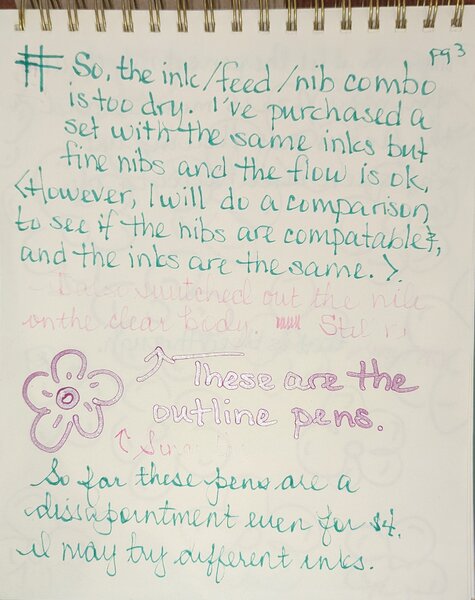 pg 3
# So, the ink/feed/nib combo
is too dry. I've purchased a
set with the same inks but
fine nibs and the flow is ok,
<However, I will do a comparison,
to see if the nibs are compatable},
and the inks are the same.>
I also switched out the nib
on the clear body. Still
These are the
outline pens.
So far these pens are a
dissapointment even for $4.
I may try different inks.